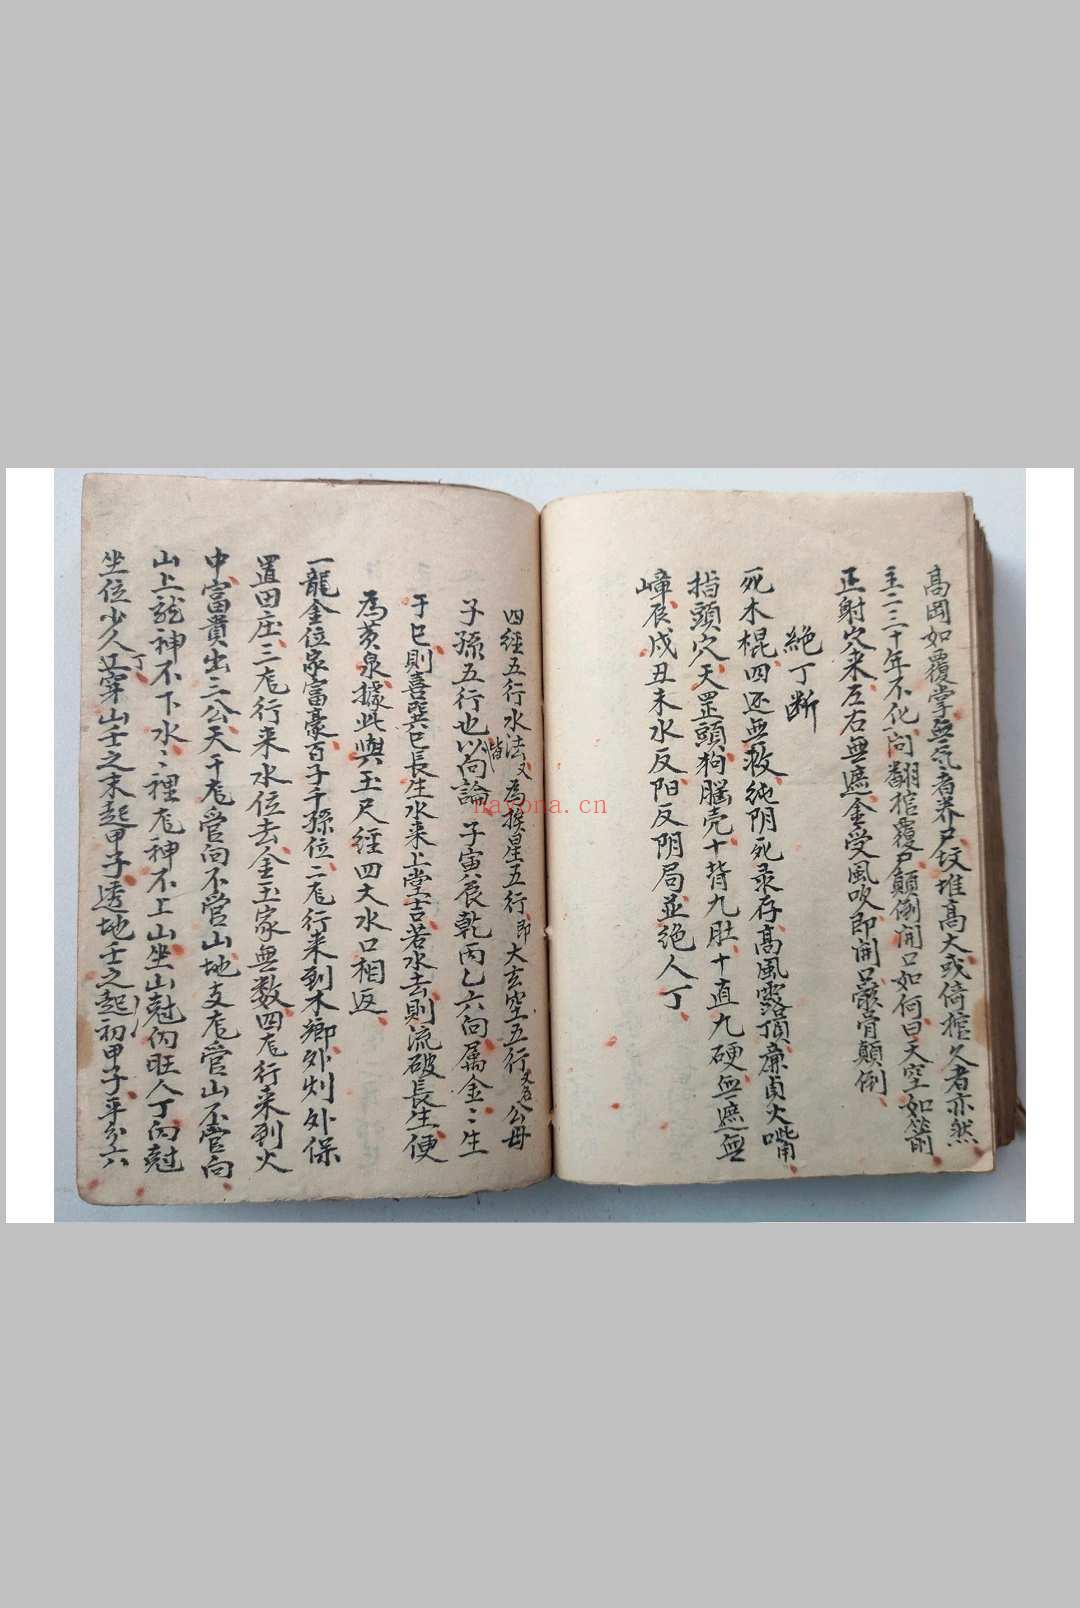 高岡如覆掌無氣者养尸坟堆高大或倚棺久者亦然
主二三十年不化问翻棺覆尸顛倒開口如何曰天空如箭
正射穴来左右無遮金受風吹即開口骸骨顛倒
絶丁断
死木棍四还無救純阴死录存高風露頂廉貞火嘴
指頭穴天罡頭狗脳壳十背九肚十直九硬無遮無
嶂辰戌丑未水反阳反阴局並絶人丁
四經五行水法又為挨星五行即大玄空五行又名公母
子孫五行也皆以向論子寅辰乾丙乙六向属金〻生
于巳則喜巽巳長生水来上堂吉若水去則流破長生便
為黄泉據此與玉尺經四大水口相返
一龍金位家富豪百子千孫位二龙行来到木鄉外州外保
置田庄三龙行来水位去金玉家無数四龙行来到火
中富貴出三公天干龙管向不管山地支龙管山不管向
山上龍神不下水〻裡龙神不上山坐山尅向旺人丁向尅
坐位少人丁穿山壬之末起甲子透地壬之初起甲子平分六
nayona.cn